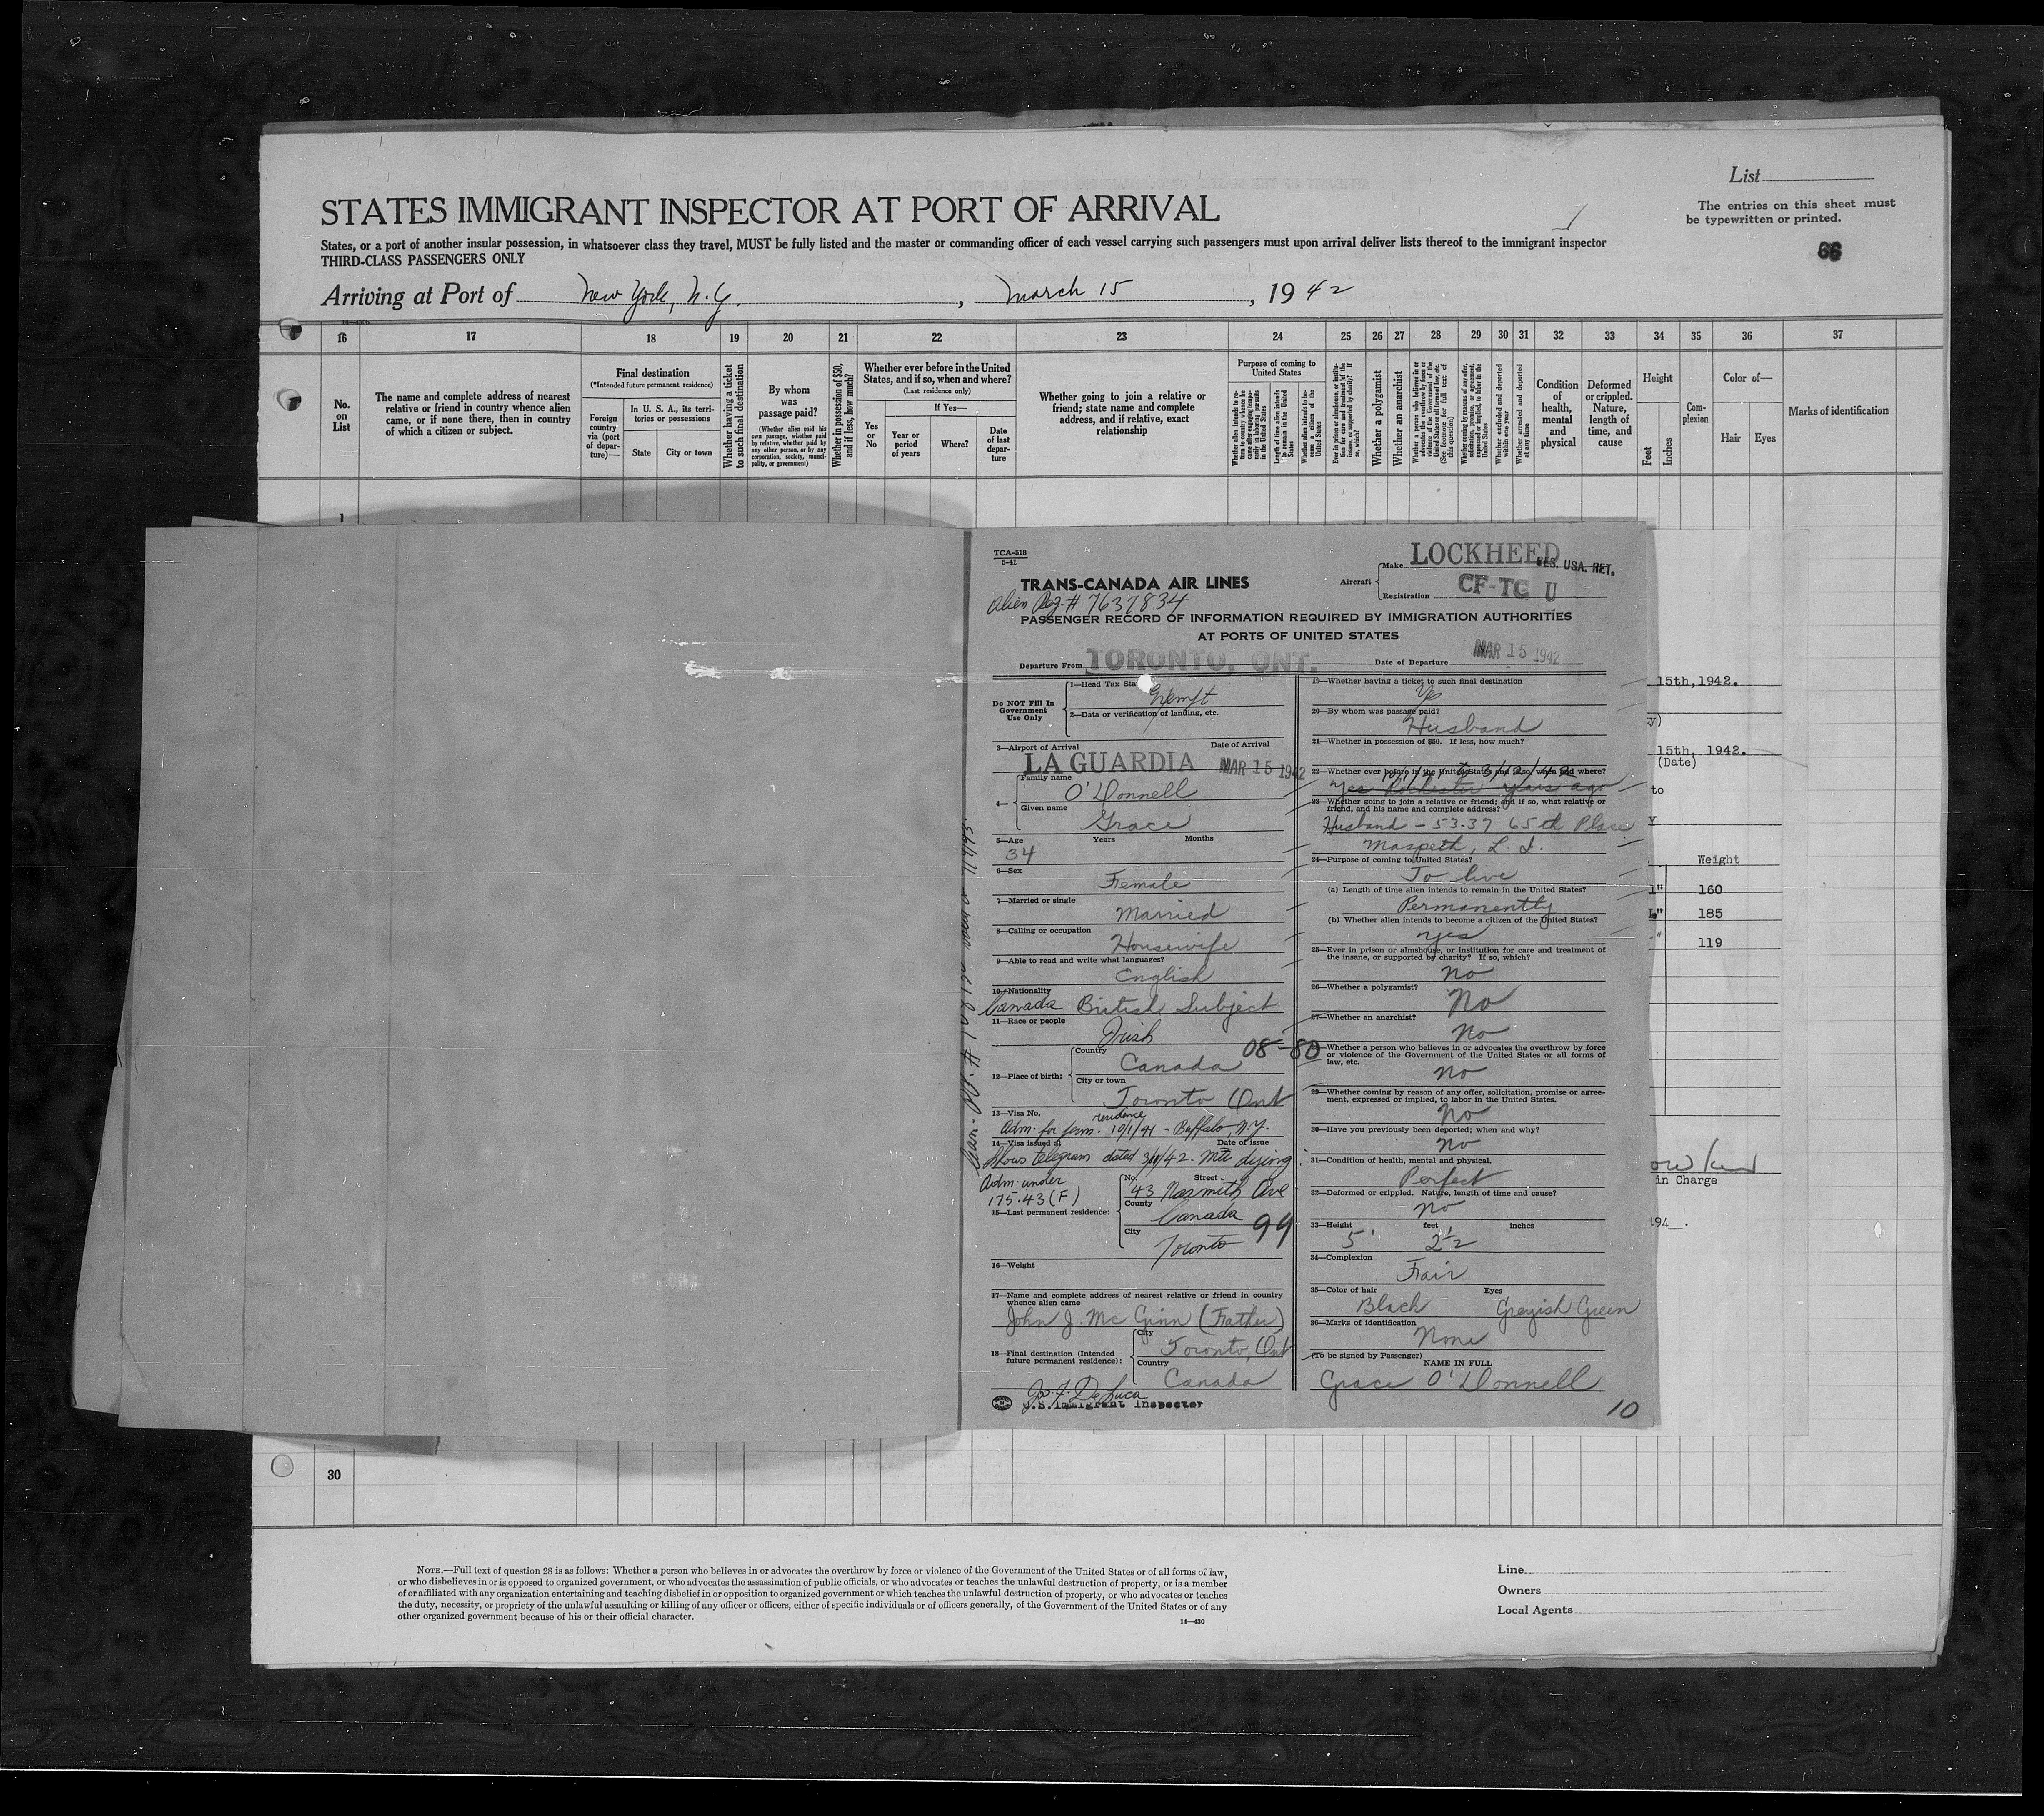 List
STATES IMMIGRANT INSPECTOR AT PORT OF ARRIVAL
The entries on this sheet must
be typewritten or printed.
States, or a port of another insular possession, in whatsoever class they travel, MUST be fully listed and the master or commanding officer of each vessel carrying such passengers must upon arrival deliver lists thereof to the immigrant inspector
THIRD-CLASS PASSENGERS ONLY
66
Arriving at Port of New York, N.Y., March 15, 1942
16 17 18 19 20 21 22 23 24 25 26 27 28 29 30 31 32 33 34 35 36 37
No.
on
List
The name and complete address of nearest
relative or friend in country whence alien
came, or if none there, then in country
of which a citizen or subject.
Final destination
(*Intended future permanent residence)
Foreign
country
via (port
of depar-
ture)—
In U. S. A., its terri-
tories or possessions
State
City or town
Whether having a ticket
to such final destination
By whom
was
passage paid?
(Whether alien paid his
own passage, whether paid
by relative, whether paid by
any other person, or by any
corporation, society, munici-
pality, or government)
Whether in possession of $50,
and if less, how much?
Whether ever before in the United
States, and if so, when and where?
(Last residence only)
Yes
or
No
If Yes—
Year or
period
of years
Where?
Date
of last
depar-
ture
Whether going to join a relative or
friend; state name and complete
address, and if relative, exact
relationship
Purpose of coming to
United States
Whether alien intends to become a citizen of the United States
Whether a polygamist
Whether an anarchist
Whether excluded and deported within one year
Whether arrested and deported at any time
Condition
of
health,
mental
and
physical
Deformed
or crippled.
Nature,
length of
time, and
cause
Height
Feet
Inches
Com-
plexion
Color of—
Hair
Eyes
Marks of identification
1
TCA-518
5-41
TRANS-CANADA AIR LINES
Alien Reg. # 7637834
Aircraft
Make LOCKHEED
RES. USA. RET.
Registration CF-TC U
PASSENGER RECORD OF INFORMATION REQUIRED BY IMMIGRATION AUTHORITIES
AT PORTS OF UNITED STATES
Departure From TORONTO, ONT.
Date of Departure MAR 15 1942
Do NOT Fill In
Government
Use Only
1—Head Tax Sta
Exempt
2—Data or verification of landing, etc.
3—Airport of Arrival
Date of Arrival
LA GUARDIA MAR 15 1942
4—
Family name
O'Donnell
Given name
Grace
5—Age Years Months
34
6—Sex
Female
7—Married or single
Married
8—Calling or occupation
Housewife
9—Able to read and write what languages?
English
10—Nationality
Canada British Subject
11—Race or people
Irish
08-80
12—Place of birth:
Country
Canada
City or town
Toronto Ont
13—Visa No.
residence
Adm. for perm. 10/1/41 - Buffalo, N.Y.
14—Visa issued at
Date of issue
Shows telegram dated
dying
Adm. under
175.43 (F)
15—Last permanent residence:
No. Street
43 Nasmith Ave
County
Canada
99
City
Toronto
16—Weight
17—Name and complete address of nearest relative or friend in country
whence alien came
John J. McGinn (Father)
18—Final destination (Intended
future permanent residence):
City
Toronto, Ont
Country
Canada
De Luca
U.S. Immigrant Inspector
19—Whether having a ticket to such final destination
Yes
20—By whom was passage paid?
Husband
21—Whether in possession of $50. If less, how much?
22—Whether ever before in the United States and if so, when and where?
Yes Rochester years ago
23—Whether going to join a relative or friend; and if so, what relative or
friend, and his name and complete address?
Husband - 53-37 65th Place
Maspeth, L. I.
24—Purpose of coming to United States?
To live
(a) Length of time alien intends to remain in the United States?
Permanently
(b) Whether alien intends to become a citizen of the United States?
yes
25—Ever in prison or almshouse, or institution for care and treatment of
the insane, or supported by charity? If so, which?
No
26—Whether a polygamist?
No
27—Whether an anarchist?
No
28—Whether a person who believes in or advocates the overthrow by force
or violence of the Government of the United States or all forms of
law, etc.
No
29—Whether coming by reason of any offer, solicitation, promise or agree-
ment, expressed or implied, to labor in the United States.
No
30—Have you previously been deported; when and why?
No
31—Condition of health, mental and physical.
Perfect
32—Deformed or crippled. Nature, length of time and cause?
No
33—Height feet inches
5' 2½
34—Complexion
Fair
35—Color of hair Eyes
Black Greyish Green
36—Marks of identification
None
(To be signed by Passenger)
NAME IN FULL
Grace O'Donnell
10
15th, 1942.
15th, 1942.
(Date)
to
Weight
160
185
119
in Charge
194_.
30
NOTE.—Full text of question 28 is as follows: Whether a person who believes in or advocates the overthrow by force or violence of the Government of the United States or of all forms of law,
or who disbelieves in or is opposed to organized government, or who advocates the assassination of public officials, or who advocates or teaches the unlawful destruction of property, or is a member
of or affiliated with any organization entertaining and teaching disbelief in or opposition to organized government or which teaches the unlawful destruction of property, or who advocates or teaches
the duty, necessity, or propriety of the unlawful assaulting or killing of any officer or officers, either of specific individuals or of officers generally, of the Government of the United States or of any
other organized government because of his or their official character.
14—430
Line
Owners
Local Agents